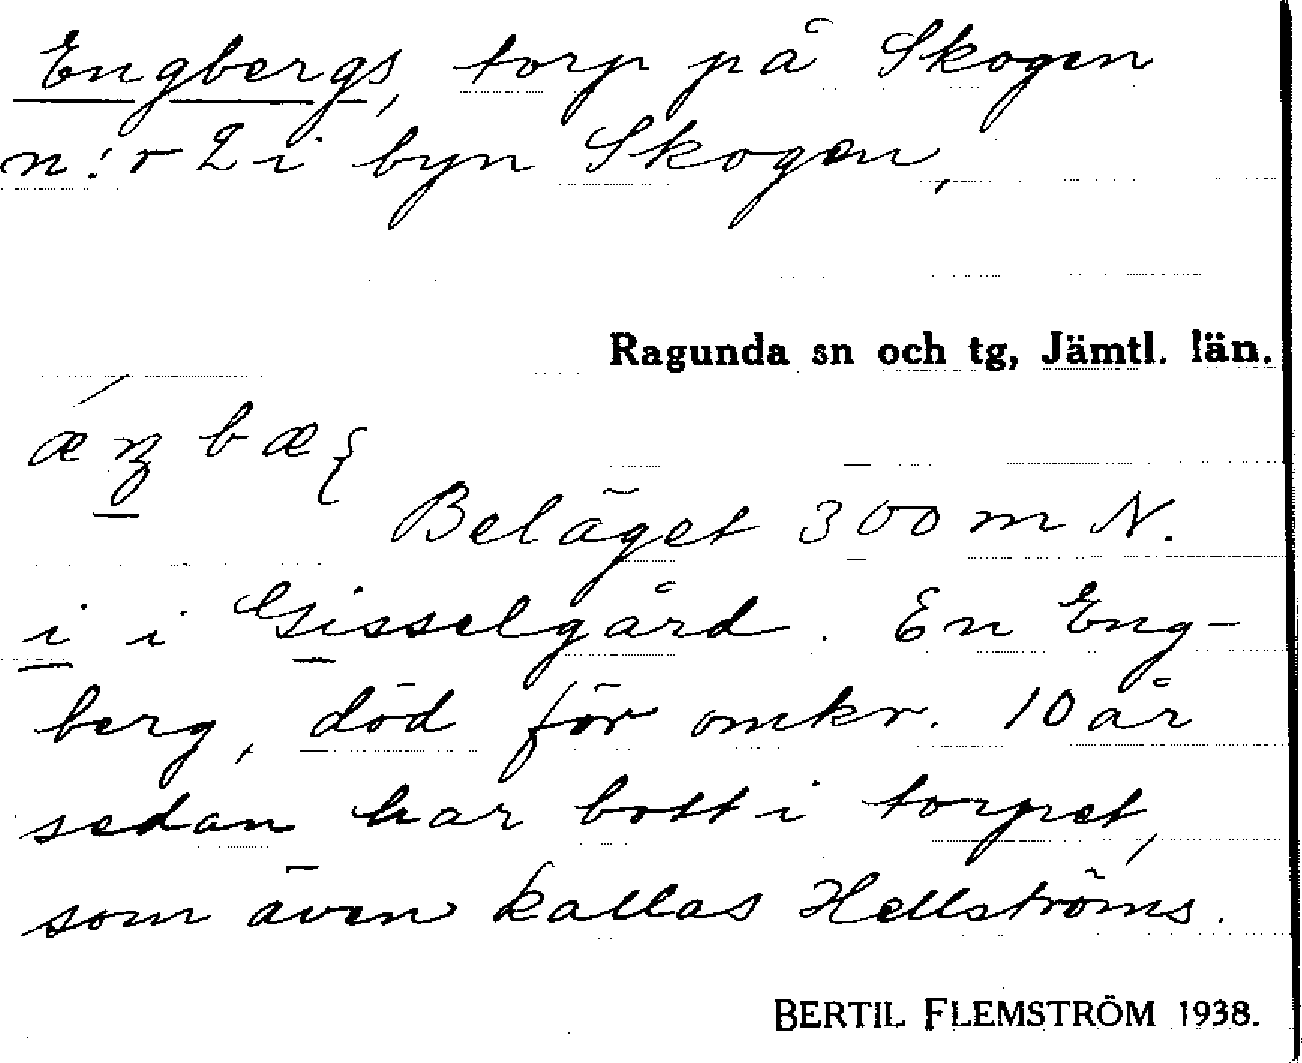 Engbergs, torp på Skogen
n:r 2 i byn Skogen,
Ragunda sn och tg, Jämtl. län.
Beläget 300 m N.
i i Gisselgård. En Eng-
berg, död för omkr. 10 år
sedan har bott i torpet,
som även kallas Hellströms.
BERTIL FLEMSTRÖM 1938.